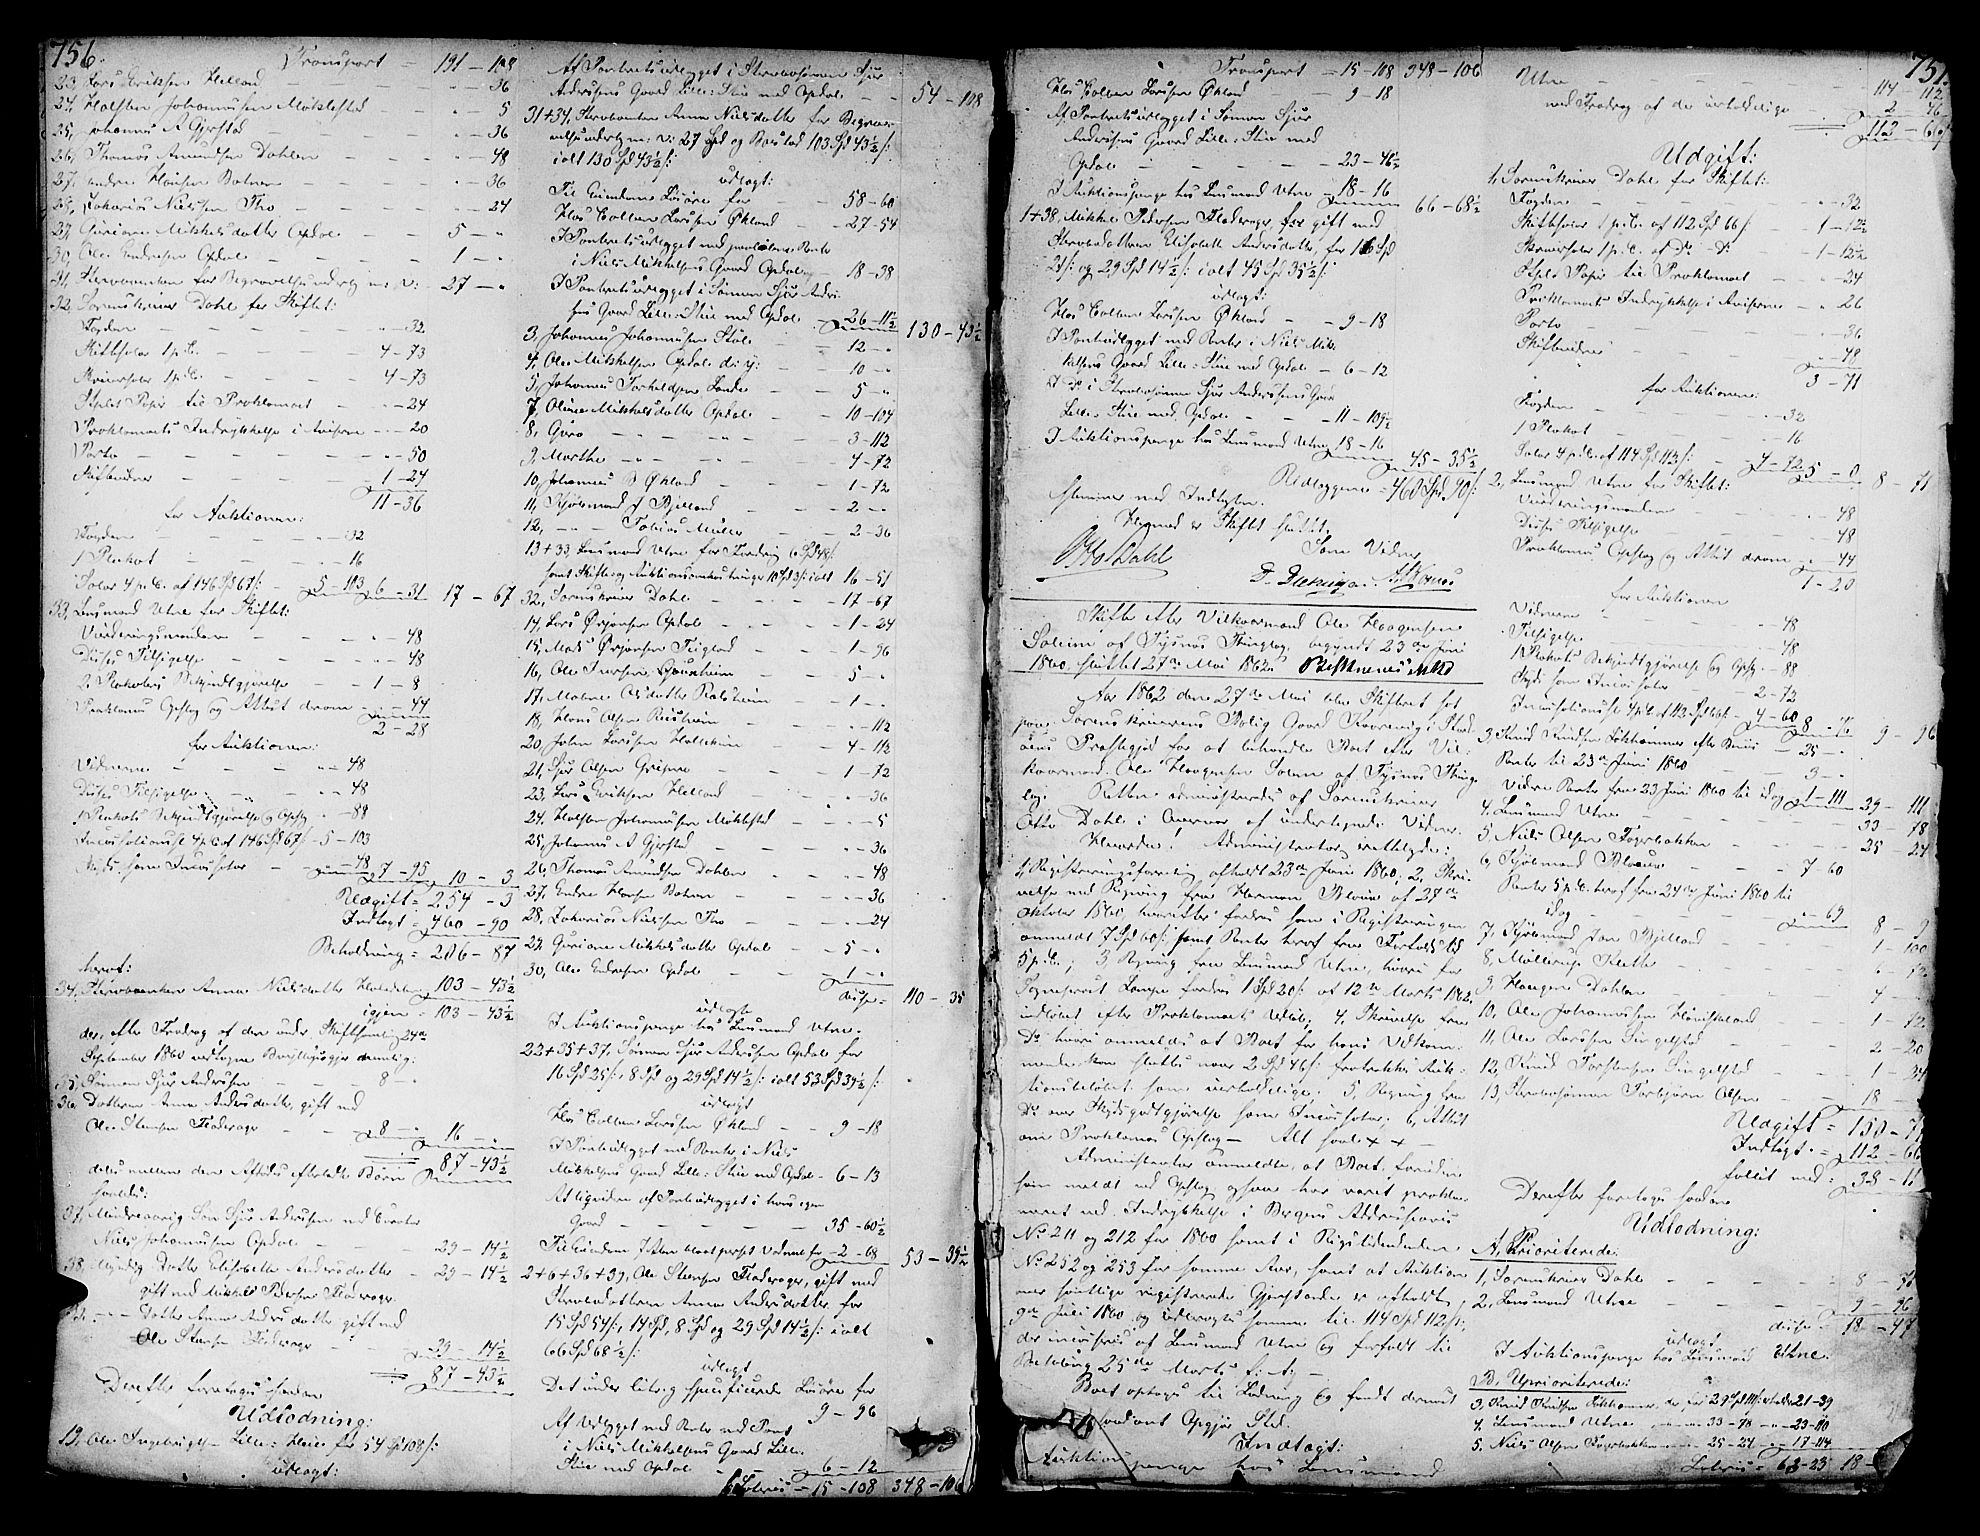 756.
Transport = 191 - 108
23, Lars Eriksen Helland - - - " - 36
24, Halsten Johannesen Møklestad " - 5
25, Johannes A Gjerstad - - " - 36
26, Thomas Amundsen Dahlen - " - 48
27, Endre Hansen Botnen - - " - 36
28, Zakarias Nielsen Tho - - " - 24
29, Guriane Mikkelsdatter Opdal - 5 - "
30, Ole Endresen Opdal - - 1 - "
31, Sterboenken for Begravelsesudredn: m: V: 27 - "
32, Sorenskriver Dahl for Skiftet:
Fogden - - - " - 32
Skiftsalar 1 p.C. - - 4 - 73
Skriversalar 1 p.C. - - 4 - 73
Stplet Papir til Proklamaet - " - 24
Proklamaets Indrykkelse i Aviserne " - 20
Porto - - - " - 50
Skiftvidner - - 1 - 24
11 - 36
for Auktionen:
Fogden - - " - 32
1 Plakat - - " - 16
Salar 4 p.C. af 146 Spd 67 s: - 5 - 103 6 - 31 17 - 67
33, Lensmand Utne for Skiftet:
Vurderingsmændene - - " - 48
Disses Tilsigelse - - " - 48
2 Plakaters Bekjendtgjørelse - 1 - 8
Proklamas Opslag og Attest derom " - 44
2 - 28
for Auktionen:
Vidnerne - - " - 48
Disses Tilsigelse - " - 48
1 Plakats Bekjendtgjørelse & Opslag " - 88
Incassation 4 p.C. af 146 Spd 67 s: 5 - 103
- 48
7 - 95 10 - 3
Udgift = 254 - 3
Indtægt = 460 - 90
Beholdning = 206 - 87
heraf:
34, Sterboenken Anna Nielsdatter Halvdelen 103 - 43½
igjen = 103 - 43½
der, efter Fradrag af den under Skiftsamling 24de
September 1860 vedtagne
35, Sønnen Sjur Andersen - 8 - "
36, Datteren Anna Andersdatter, gift med
Ole Stensen Fladerager - 8 - " 16 - "
87 - 43½
deles mellem den Afdødes efterladte Børn
saaledes:
37, Mindreaarig Søn Sjur Andersen ved Curator
Niels Johannesen Opdal - - 29 - 14½
38, Myndig Datter Elisabeth Andersdatter - 29 - 14½
gift med Mikkel Pedersen Fladerager
39, - - Datter Anna Andersdatter gift med
Ole Stensen Fladerager - - 29 - 14½
87 - 43½
Derefter foretoges saadan
Udlodning:
19, Ole Ingebrigtsen Lille-Heie for 54 Spd 108 s:
udlagt:
Af Pantretsudlægget i Sterbosønnen Sjur
Andersens Gaard Lille-Skie med Opdal - 54 - 108
31+34, Sterboenken Anna Nielsdatter for Begravelsesudredn: m: V: 27 Spd og Boeslod 103 Spd 43½ s:
ialt 130 Spd 43½ s:
udlagt:
Til Eiendom Løsøre for - - 58 - 60
Hos Colben Larsen Økland - - 27 - 54
I Pantretsudlægget med paaløbne Renter
i Niels Mikkelsens Gaard Opdal - 18 - 38
I Pantretsudlægget i Sønnen Sjur Andersens Gaard Lille-Skie med Opdal - 26 - 11½ 130 - 43½
3, Johannes Johannesen Støle - 12 - "
4, Ole Mikkelsen Opdal d: y: - 10 - "
5, Johannes Torkildsen Lande - 5 - "
7, Oline Mikkelsdatter Opdal - 10 - 104
8, Guro - - " - 3 - 112
9, Marthe - - " - 4 - 72
10, Johannes D Økland - - 1 - 72
11, Kjøbmand J Bjelland - - 2 - "
12, - " - Tobias Møller - 2 - 36
13+33, Lensmand Utne for Fordring 6 Spd 48 s:
samt Skifte og Auktionsomkostninger 10 Spd 3 s: ialt 16 - 51
32, Sorenskriver Dahl - - 17 - 67
14, Lars Ørjansen Opdal - - 1 - 24
15, Mads Ørjansen Teigland - - 1 - 96
16, Ole Iversen - - 5 - "
17, Malene Olsdatter - 1 - "
18, Hans Olsen - - " - 112
20, John Larsen Hollekim - - 4 - 112
21, Sjur Olsen Gripne - - 1 - 72
23, Lars Eriksen Helland - - " - 36
24, Halsten Johannesen Møklestad " - 5
25, Johannes A Gjerstad - - " - 36
26, Thomas Amundsen Dahlen - " - 48
27, Endre Hansen Botnen - - " - 36
28, Zakarias Nielsen Tho - - " - 24
29, Guriane Mikkelsdatter Opdal - 5 - "
30, Ole Endresen Opdal - - 1 - "
disse = 110 - 35
udlagt
I Auktionspenge hos Lensmand Utne.
22+35+37, Sønnen Sjur Andersen Opdal for
16 Spd 25 s:, 8 Spd og 29 Spd 14½ s: ialt 53 Spd 39½ s:
udlagt
Hos Colben Larsen Økland - - 9 - 18
I Pantudlægget med Renter, i Niels
Mikkelsens Gaard Lille-Skie med Opdal - 6 - 13
At liqvidere af Pantudlægget i hans egen
Gaard - - - 35 - 60½
Til Eiendom 7 Alen blaat perset Vadmel for - 2 - 68 53 - 39½
2+6+36+39, Ole Stensen Fladerager, gift med
Sterbodatteren Anna Andersdatter for
15 Spd 54 s:, 14 Spd, 8 Spd og 29 Spd 14½ s: ialt
66 Spd 68½ s:
udlagt
Det under Litr. g specificerede Løsøre for
9 - 96
Af Udlægget med Renter med Pant
i Niels Mikkelsens Gaard Lille-
Skie med Opdal - - 6 - 12
Lateris = 15 - 108 348 - 106
757.
Transport = 15 - 108 348 - 106
Hos Colben Larsen Økland - - 9 - 18
Af Pantretsudlægget i Sønnen Sjur
Andersens Gaard Lille-Skie med
Opdal - - - 23 - 46½
I Auktionspenge hos Lensmand Utne = 18 - 16
66 - 68½
1+38, Mikkel Pedersen Fladerager, for gift med
Sterbodatteren Elisabeth Andersdatter for 16 Spd
21 s: og 29 Spd 14½ s: ialt 45 Spd 35½ s:
udlagt:
Hos Colben Larsen Økland - - 9 - 18
I Pantudlægget med Renter i Niels Mikkelsens Gaard Lille-Skie med Opdal - 6 - 12
I Do i Sterbosønnen Sjur Andersens Gaard
Lille-Skie med Opdal - - 11 - 109½
I Auktionspenge hos Lensmand Utne 18 - 16
45 - 35½
Udlæggene = 460 Spd 90 s:
stemmer med Indtægten.
Hermed er Skiftet sluttet.
Otto Dahl Som Vidner
Skifte efter Vilkaarsmand Ole Haagensen
Soleim af Tysnæs Thinglag, begyndt 23de Juni
1860, sluttet 27de Mai 1862.
Aar 1862 den 27de Mai blev Skifteret sat
paa Sorenskriverens Bolig Gaard Kaarevig i Stordøens Præstegjeld for at behandle Boet efter Vilkaarsmand Ole Haagensen Soleim af Tysnæs Thinglag. Retten administreredes af Sorenskriver
Otto Dahl i Overvær af undertegnede Vidner.
Hvorda! Administrator, fremlagde:
1, Registreringsforretning afholdt 23de Juni 1860; 2, Skrivelse med Regning fra Herman Blauw af 27de
Oktober 1860, hvorefter fordres som i Registreringen
anmeldt 7 Spd 60 s: samt Renter heraf fra Forfaldstid
5 p.C.; 3 Regning fra Lensmand Utne, hvori for
Sognepræst Lampe fordres 1 Spd 20 s: af 12te Marts 1862,
indløbet efter Proklamaets Udløb; 4, Skrivelse fra
Do hvori anmeldes at Boet for hans Vedkommende kan sluttes naar 2 Spd 46 s: fratrækkes Auktionsbeløbet som uerholdelige; 5, Regning fra
Do over Skydsgodtgjørelse som Incassator; 6, Attest
om Proklamas Opslag - Alt saal: x x -
Administrator anmeldte, at Boet, foruden
som meldt ved Opslag, ogsaa har været proklameret ved Indrykkelse i Bergens Adressecontoirs
No 211 og 212 for 1860 samt i Rigstidenden
No 252 og 253 for samme Aar, samt at Auktion
over samtlige registrerede Gjenstande er afholdt
9de Juli 1860 og udbragtes Summen til 114 Spd 112 s:,
der incasseres af Lensmand Utne og forfaldt til
Betaling 25de Marts f: A: -
Boet optoges til Lodning og fandt dermed
saadant Opgjør Sted.
Indtægt:
Auktionspenge hos Lensmand
Utne - - - 114 - 112
med Fradrag af de uerholdelige - 2 - 46
112 - 66
Udgift:
1, Sorenskriver Dahl for Skiftet:
Fogden - - - " - 32
Skiftsalar 1 p.C. af 112 Spd 66 s: - 1 - 12½
Skriversalar 1 p.C. af Do Do - 1 - 12½
Stplt Papir til Proklamaet - " - 24
Proklamaets Indrykkelse i Aviserne - " - 26
Porto - - - " - 36
Skiftvidner - - - " - 48
3 - 71
for Auktionen:
Fogden - - " - 32
1 Plakat - - " - 16
Salar 4 p.C. af 114 Spd 112 s: - 4 - 72 5 - 0 8 - 71
2, Lensmand Utne for Skiftet:
Vurderingsmændene - - " - 48
Disses Tilsigelse - - " - 48
Proklamas Opslag og Attest derom - " - 44
1 - 20
for Auktionen
Vidnerne - - " - 48
Tilsigelse - - " - 48
1 Plakats Bekjendtgjørelse og Opslag - " - 88
Skyds som Incassator - 2 - 72
Incassation 4 p.C. af 112 Spd 66 s: - 4 - 60 8 - 76 9 - 96
3, Knud Knudsen Løkhammer efter Bevis - 25 - "
Renter til 23de Juni 1860 - 3 - "
Videre Renter fra 23 Juni 1860 til idag 1 - 111 29 - 111
4, Lensmand Utne - - - 33 - 78
5, Niels Olsen Fagerbakken - - 25 - 24
6, Kjøbmand Blauw - - 7 - 60
Renter 5 p.C. heraf fra 24de Juni 1860 til
idag - - " - 69 8 - 9
7, Kjøbmand Jan Bjelland - - 1 - 100
8, Mallerup Klette - -
9, Haagen Dahlen - - 4 - "
10, Ole Johannesen - - 1 - 72
11, Ole Larsen Singelstad - - 2 - 20
12, Knud Torstensen Singelstad - - 1 - 24
13, Sterbosønnen Torbjørn Olsen - - 18 -
Udgift = 150 - 77
Indtægt = 112 - 66
fallit med = 38 - 11
Derefter foretoges saadan
Udlodning:
A, Prioriterede:
1, Sorenskriver Dahl - - - 8 -
2, Lensmand Utne - - - 9 - 96
disse = 18 - 47
udlagt
I Auktionspenge hos Lensmand Utne.
B, Uprioriterede:
3, Knud Knudsen Løkhammer, der for 29 Spd 111 s: erholder 21 - 39
4, Lensmand Utne - " - 33 - 78 " - 23 - 110
5, Niels Olsen Fagerbakken - " - 25 - 24 " - 17 - 114
Lateris = 63 - 23 18 -